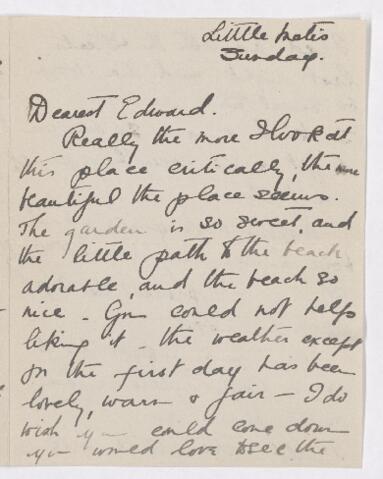 Little Metis
Sunday.
Dearest Edward.
Really the more I look at
this place critically, the more
beautiful the place seems.
The garden is so sweet, and
the little path to the beach
adorable, and the beach so
nice - You could not help
liking it - the weather except
for the first day has been
lovely, warm & fair - I do
wish you could come down
you would love to see the